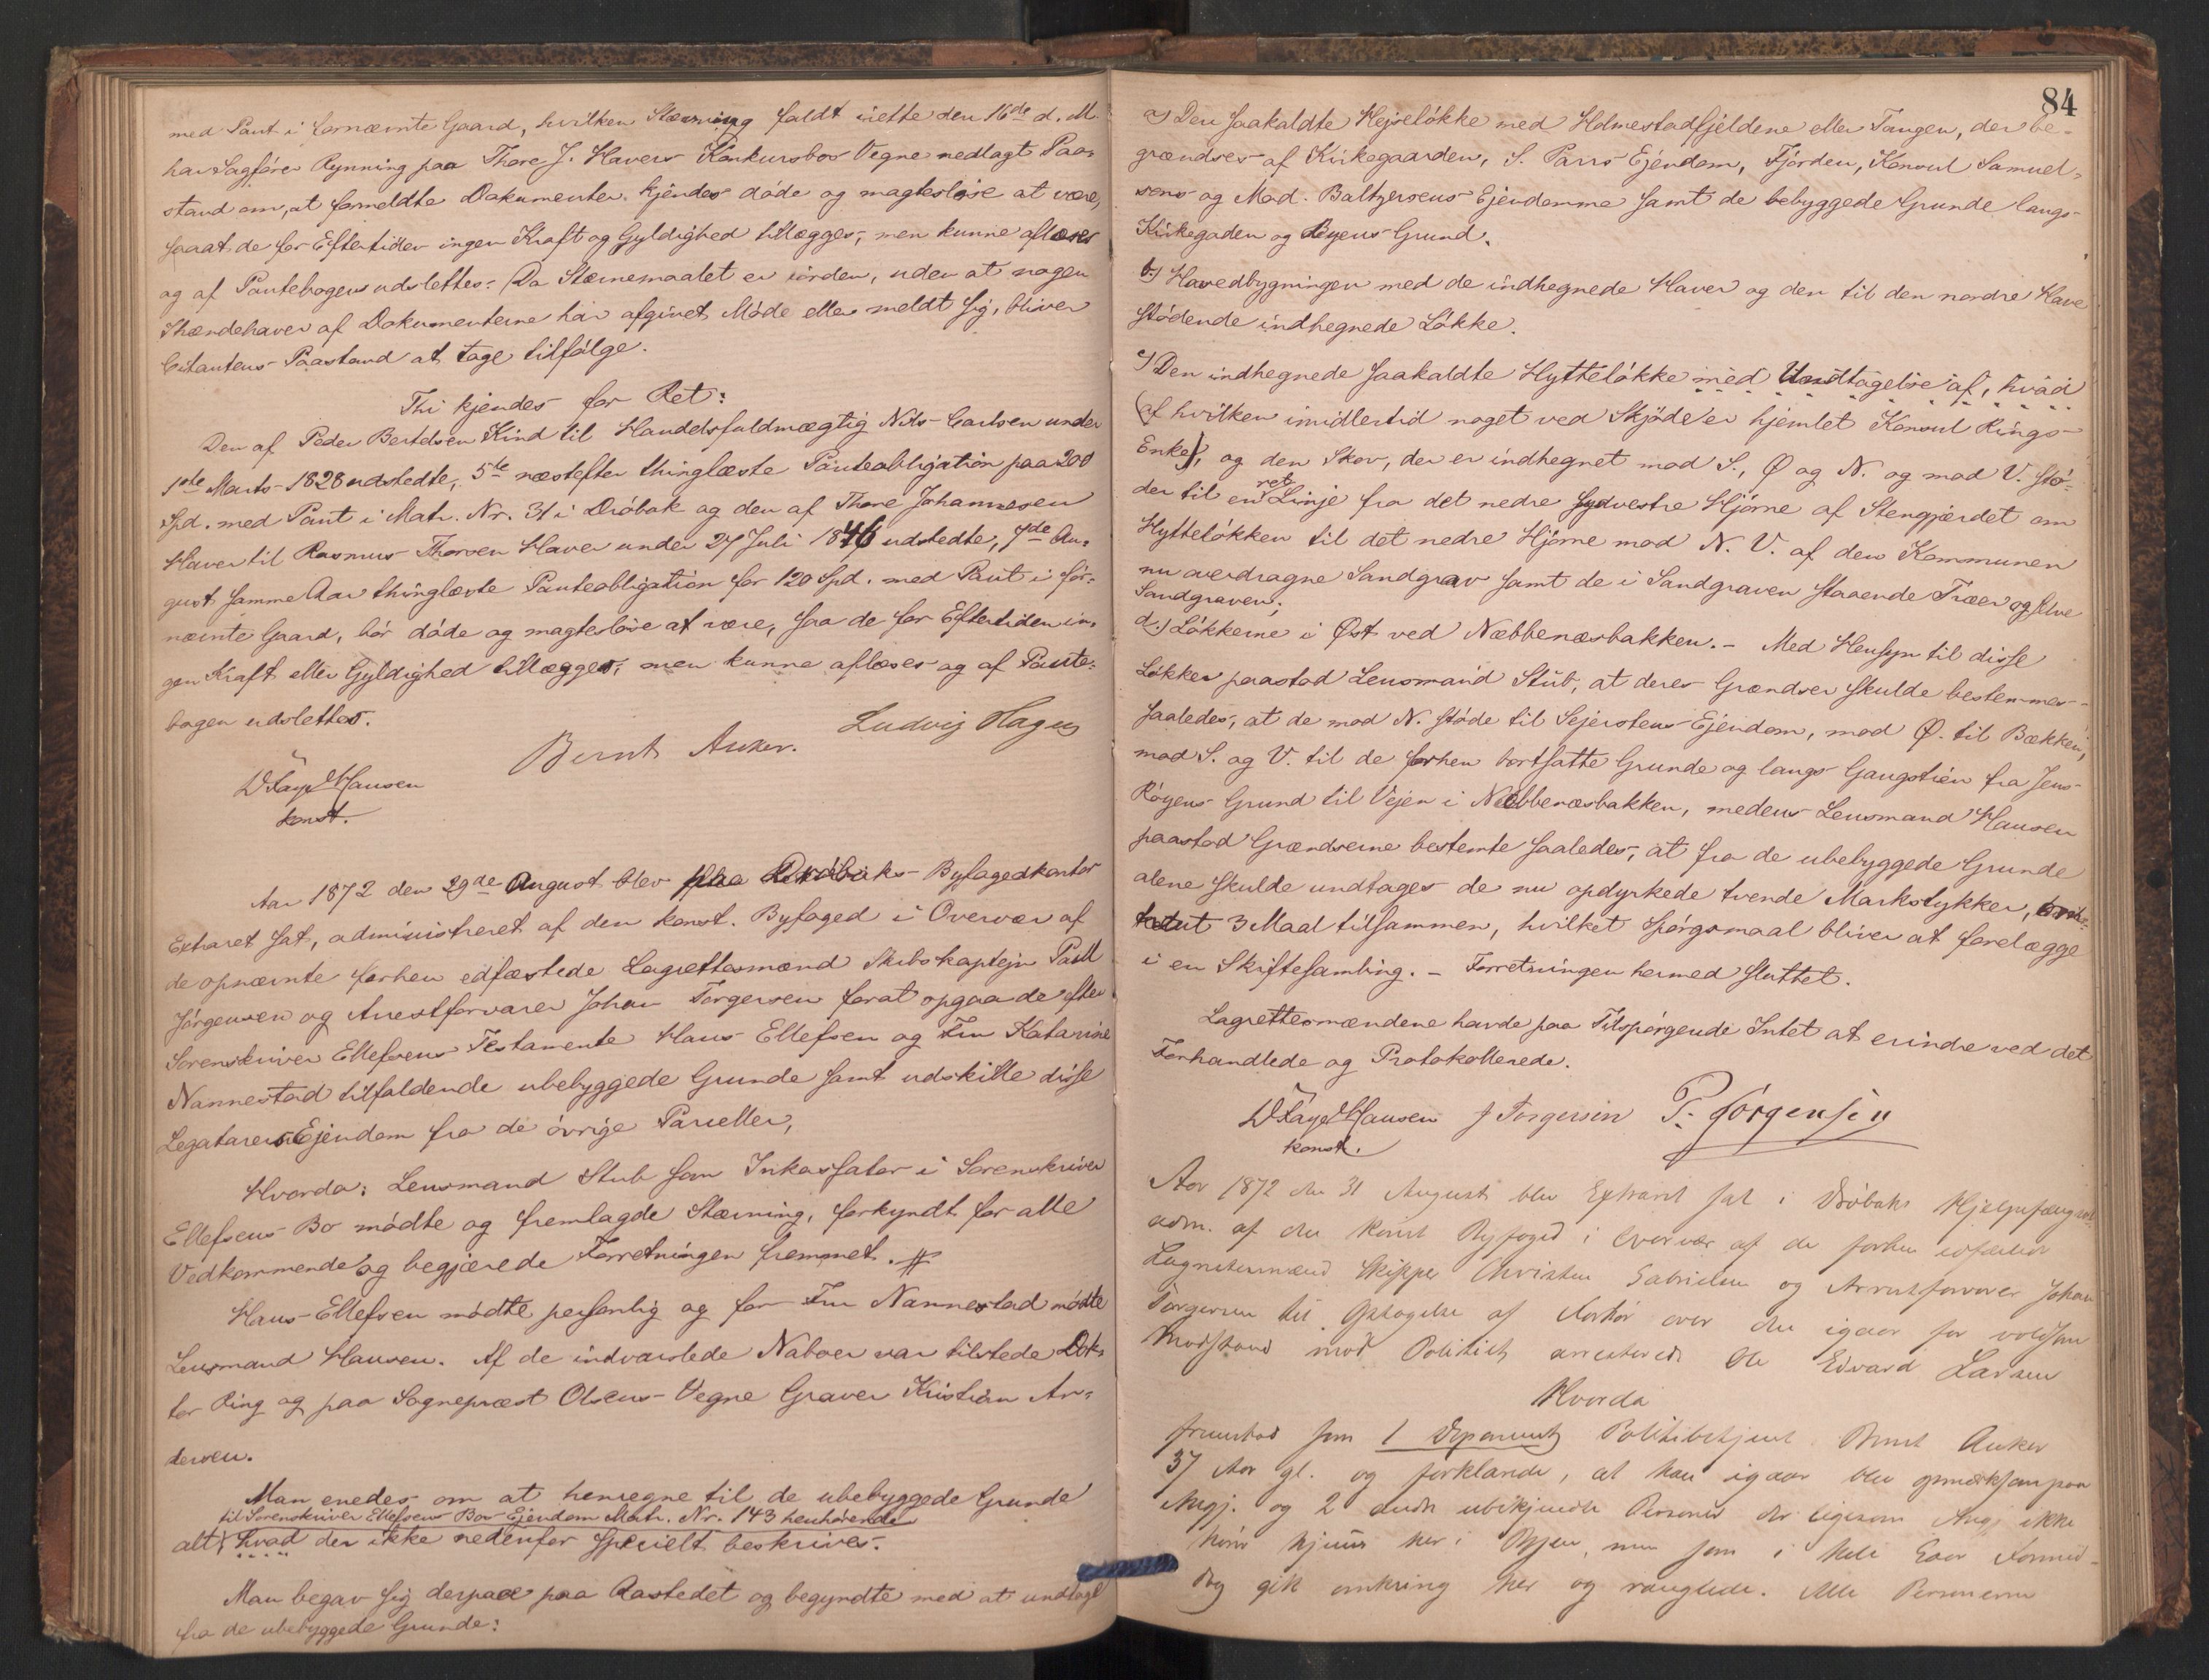 med Pant i fornævnte Gaard, hvilken Stævning faldt irette den 16de d. M.
har Sagfører Rynning paa Thore J. Havers Konkursbos Vegne nedlagt Paa-
stand om, at formeldte Dokumenter kjendes døde og magtesløse at være,
saaat de for Eftertiden ingen Kraft og Gyldighed tillægges, men kunne aflæses
og af Pantebogen udslettes. Da Stævnemaalet er iorden, uden at nogen
Ihændehaver af Dokumenterne har afgivet Møde eller meldt sig, bliver
Citantens Paastand at tage tilfølge.
Thi kjendes for Ret:
Den af Peder Bertelsen Kind til Handelsfuldmægtig Nils Carlsen under
1ste Marts 1828 udstedte, 5te næstefter thinglæste Panteobligation paa 200
Spd. med Pant i Matr. Nr. 31 i Drøbak og den af Thore Johannesen
Haver til Rasmus Thorsen Haver under 27 Juli 1846 udstedte, 7de Au-
gust samme Aar thinglæste Panteobligation for 120 Spd. med Pant i før-
nævnte Gaard, bør døde og magtesløse at være, saa de for Eftertiden in-
gen Kraft eller Gyldighed tillægges, men kunne aflæses og af Pante-
bogen udslettes.
Bernt Anker. Ludvig Hagen
Hansen
konst.
Aar 1872 den 29de August blev paa Drøbaks Byfogedkontor
Extraret sat, administreret af den konst. Byfoged i Overvær af
de opnævnte forhen edfæstede Lagrettesmænd Skibskaptejn Paul
Jørgensen og Arrestforvarer Johan Torgersen forat opgaa de efter
Sorenskriver Ellefsens Testamente Hans Ellefsen og Fru Katarine
Nannestad tilfaldende ubebyggede Grunde samt udskille disse
Legatarers Ejendom fra de øvrige Parceller,
Hvorda: Lensmand Stub som Inkassator i Sorenskriver
Ellefsens Bo mødte og fremlagde Stævning, forkyndt for alle
Vedkommende og begjærede Forretningen fremmet. #
Hans Ellefsen mødte personlig og for Fru Nannestad mødte
Lensmand Hansen. Af de indvarslede Naboer var tilstede Dok-
tor Ring og paa Sogneprest Olsens Vegne Graver Kristian An-
dersen.
Man enedes om at henregne til de ubebyggede Grunde
til Sorenskriver Ellefsens Bos Ejendom Matr. Nr. 143 henhørende
alt hvad der ikke nedenfor specielt beskrives.
Man begav sig derpaa paa Aastedet og begyndte med at undtage
fra de ubebyggede Grunde:
84
a) Den saakaldte Hejseløkke med Holmestadfjeldene eller Tangen, der be-
grændses af Kirkegaarden, S. Parrs Ejendom, Fjorden, Konsul Samuel-
sens og Mad. Baltzersens Ejendomme samt de bebyggede Grunde langs
Kirkegaden og Byens Grund.
b) Hovedbygningen med de indhegnede Haver og den til den nordre Have
stødende indhegnede Løkke.
c) Den indhegnede saakaldte Hytteløkke med Undtagelse af, hvad
(af hvilken imidlertid noget ved Skjøde er hjemlet Konsul Rings
Enke), og den Skov, der er indhegnet mod S., Ø og N. og mod V. stø-
der til en ret Linje fra det nedre sydvestre Hjørne af Stengjærdet om
Hytteløkken til det nedre Hjørne mod N. V. af den Kommunen
nu overdragne Sandgrav samt de i Sandgraven staaende Træer og selve
Sandgraven;
d.) Løkkerne i Øst ved Næbbenæsbakken. – Med Hensyn til disse
Løkker paastod Lensmand Stub, at deres Grændser skulde bestemmes
saaledes, at de mod N. støde til Sejerstens Ejendom, mod Ø. til Bækken,
mod S. og V. til de forhen bortsatte Grunde og langs Gangstien fra Jens
Røyens Grund til Vejen i Næbbenæsbakken, medens Lensmand Hansen
paastod Grændserne bestemte saaledes, at fra de ubebyggede Grunde
alene skulde undtages de nu opdyrkede tvende Markstykker,
3 Maal tilsammen, hvilket Spørgsmaal bliver at forelægge
i en Skiftesamling. – Forretningen hermed sluttet.
Lagrettesmændene havde paa Tilspørgende Intet at erindre ved det
Forhandlede og Protokollerede.
Hansen J Torgersen P. Jørgensen
konst.
Aar 1872 den 31 August blev Extraret sat i Drøbaks Hjelpefængsel
adm. af den konst Byfoged i Overvær af de forhen edfæstede
Lagrettesmænd Skipper Christen Gabrielsen og Arrestforvarer Johan
Torgersen til Optagelse af Forhør over den igaar for voldsom
Modstand mod Politiet arresterede Ole Edvard Larsen
Hvorda
fremstod som 1 Deponent Politibetjent Bernt Anker
37 Aar gl. og forklarede, at han igaar blev opmærksom paa
Angj. og 2 andre ubekjendte Personer der ligesom Angj ikke
hører hjemme her i Byen, men som i hele Gaar Formid-
dag gik omkring her og ranglede. Alle Personerne